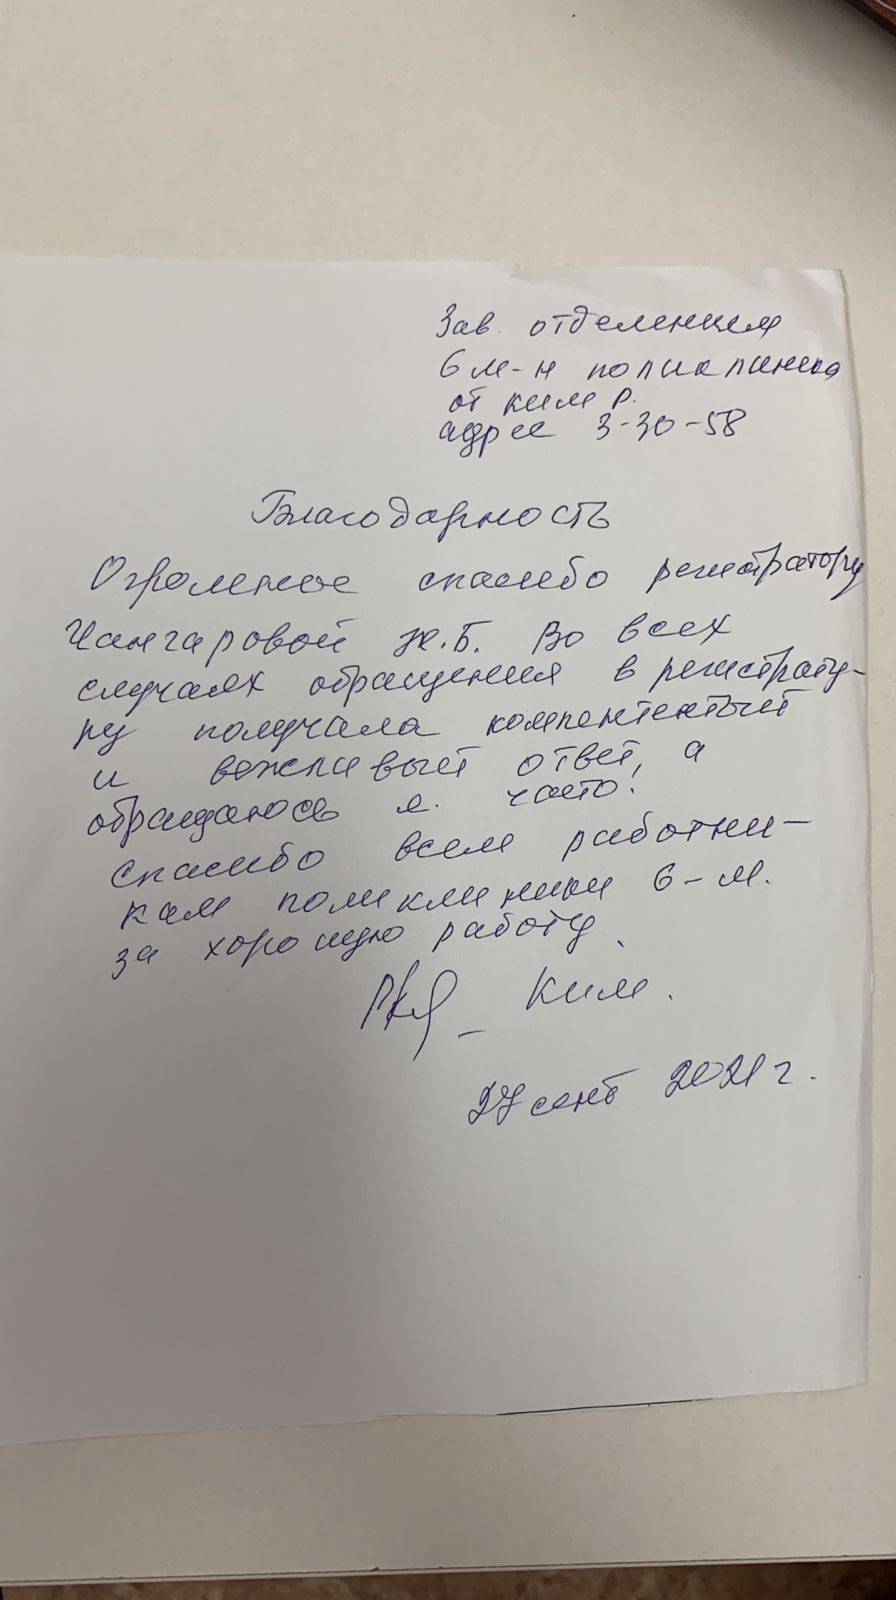 Зав. отделением
6 м-н поликлиника
от Ким Р.
адрес 3-30-58
Благодарность
Огромное спасибо регистратору
Чангаровой Ж.Б. Во всех
случаях обращения в регистрату-
ру получала компентентый
и вежливый ответ, а
обращаюсь я часто!
Спасибо всем работни-
кам поликлиники 6-м.
за хорошую работу.
Ким.
27 сент 2021 г.